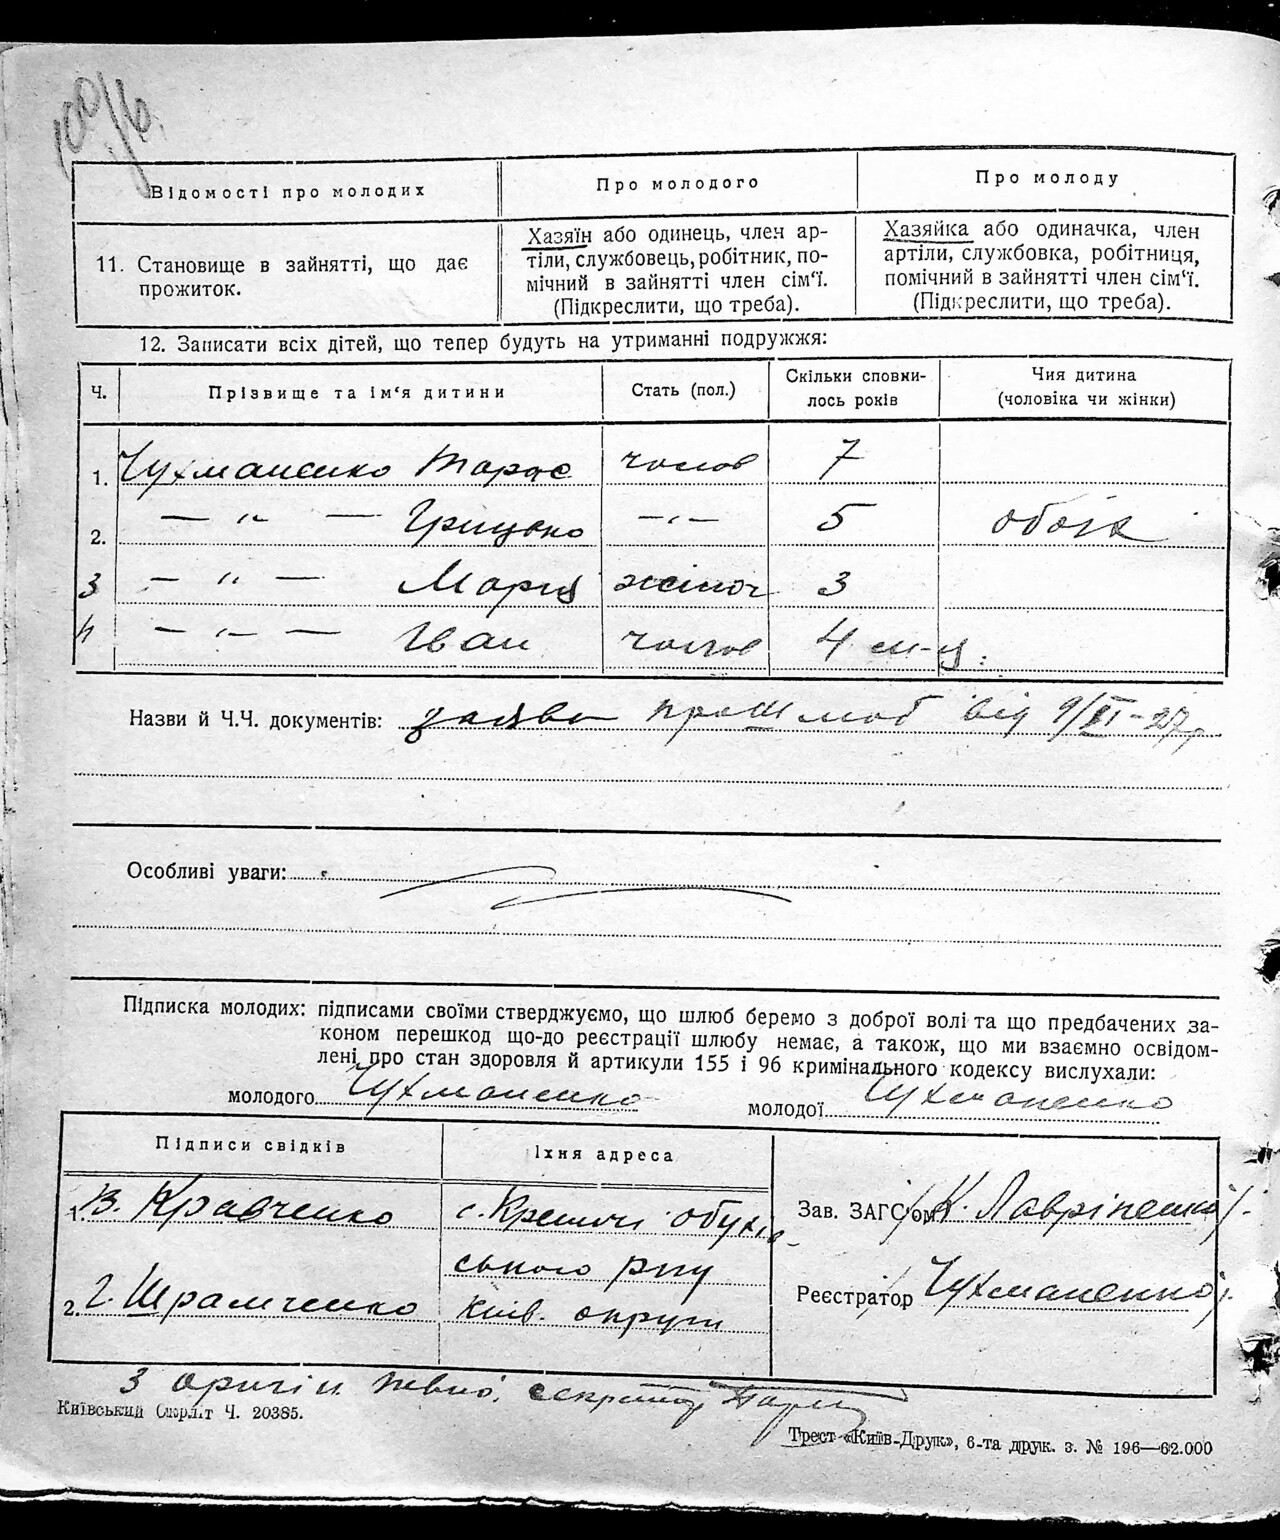 100/16.
Відомості про молодих
Про молодого
Про молоду
11. Становище в зайнятті, що дає
прожиток.
Хазяїн або одинець, член ар-
тіли, службовець, робітник, по-
мічний в зайнятті член сім‘ї.
(Підкреслити, що треба).
Хазяйка або одиначка, член
артіли, службовка, робітниця,
помічний в зайнятті член сім‘ї.
(Підкреслити, що треба).
12. Записати всіх дітей, що тепер будуть на утриманні подружжя:
Ч.
Прізвище та ім‘я дитини
Стать (пол.)
Скільки сповни-
лось років
Чия дитина
(чоловіка чи жінки)
1. Чухманенко Тарас чолов 7
2. — „ — Грицько —„— 5 обоїх
3 — „ — Мария жіноч 3
4 — „ — Іван чолов 4 м-ця.
Назви й Ч.Ч. документів: заява про шлюб від 9/XI-27р
Особливі уваги:
Підписка молодих: підписами своїми стверджуємо, що шлюб беремо з доброї волі та що предбачених за-
коном перешкод що-до реєстрації шлюбу немає, а також, що ми взаємно освідом-
лені про стан здоровля й артикули 155 і 96 кримінального кодексу вислухали:
молодого Чухманенко молодої Чухманенко
Підписи свідків
Їхня адреса
1. В. Кравченко
2. Г. Шрамченко
с. Креничі Обухів-
ського р-ну
Київ. округи
Зав. ЗАГС‘ом /К. Лавріненко/.
Реєстратор Чухманенко/.
З оригін. певно, секретар
Київський Окрліт Ч. 20385.
Трест «Київ-Друк», 6-та друк. з. № 196—62.000